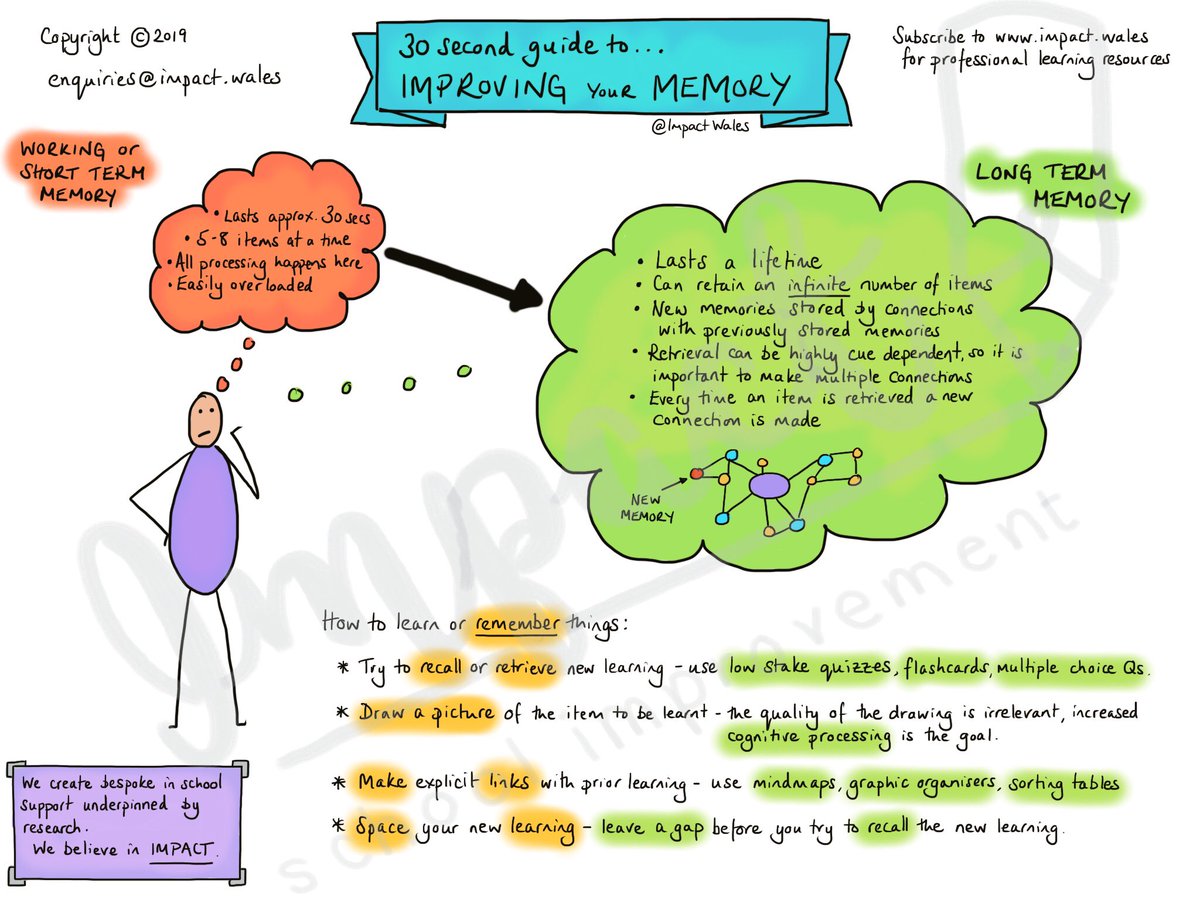 Copyright ©2019
enquiries@impact.wales
30 second guide to...
IMPROVING your MEMORY
@Impact Wales
Subscribe to www.impact.wales
for professional learning resources
WORKING or
SHORT TERM
MEMORY
• Lasts approx. 30 secs
• 5-8 items at a time
• All processing happens here
• Easily overloaded
LONG TERM
MEMORY
• Lasts a lifetime
• Can retain an infinite number of items
• New memories stored by connections
with previously stored memories
• Retrieval can be highly cue dependent, so it is
important to make multiple connections
• Every time an item is retrieved a new
connection is made
NEW
MEMORY
How to learn or remember things:
* Try to recall or retrieve new learning - use low stake quizzes, flashcards, multiple choice Qs.
* Draw a picture of the item to be learnt - the quality of the drawing is irrelevant, increased
cognitive processing is the goal.
* Make explicit links with prior learning - use mindmaps, graphic organisers, sorting tables
* Space your new learning - leave a gap before you try to recall the new learning.
We create bespoke in school
support underpinned by
research.
We believe in IMPACT.
Impact
school improvement